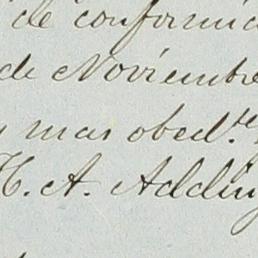 de conformid
de Noviembre
y mas obed.te
H. A. Adding